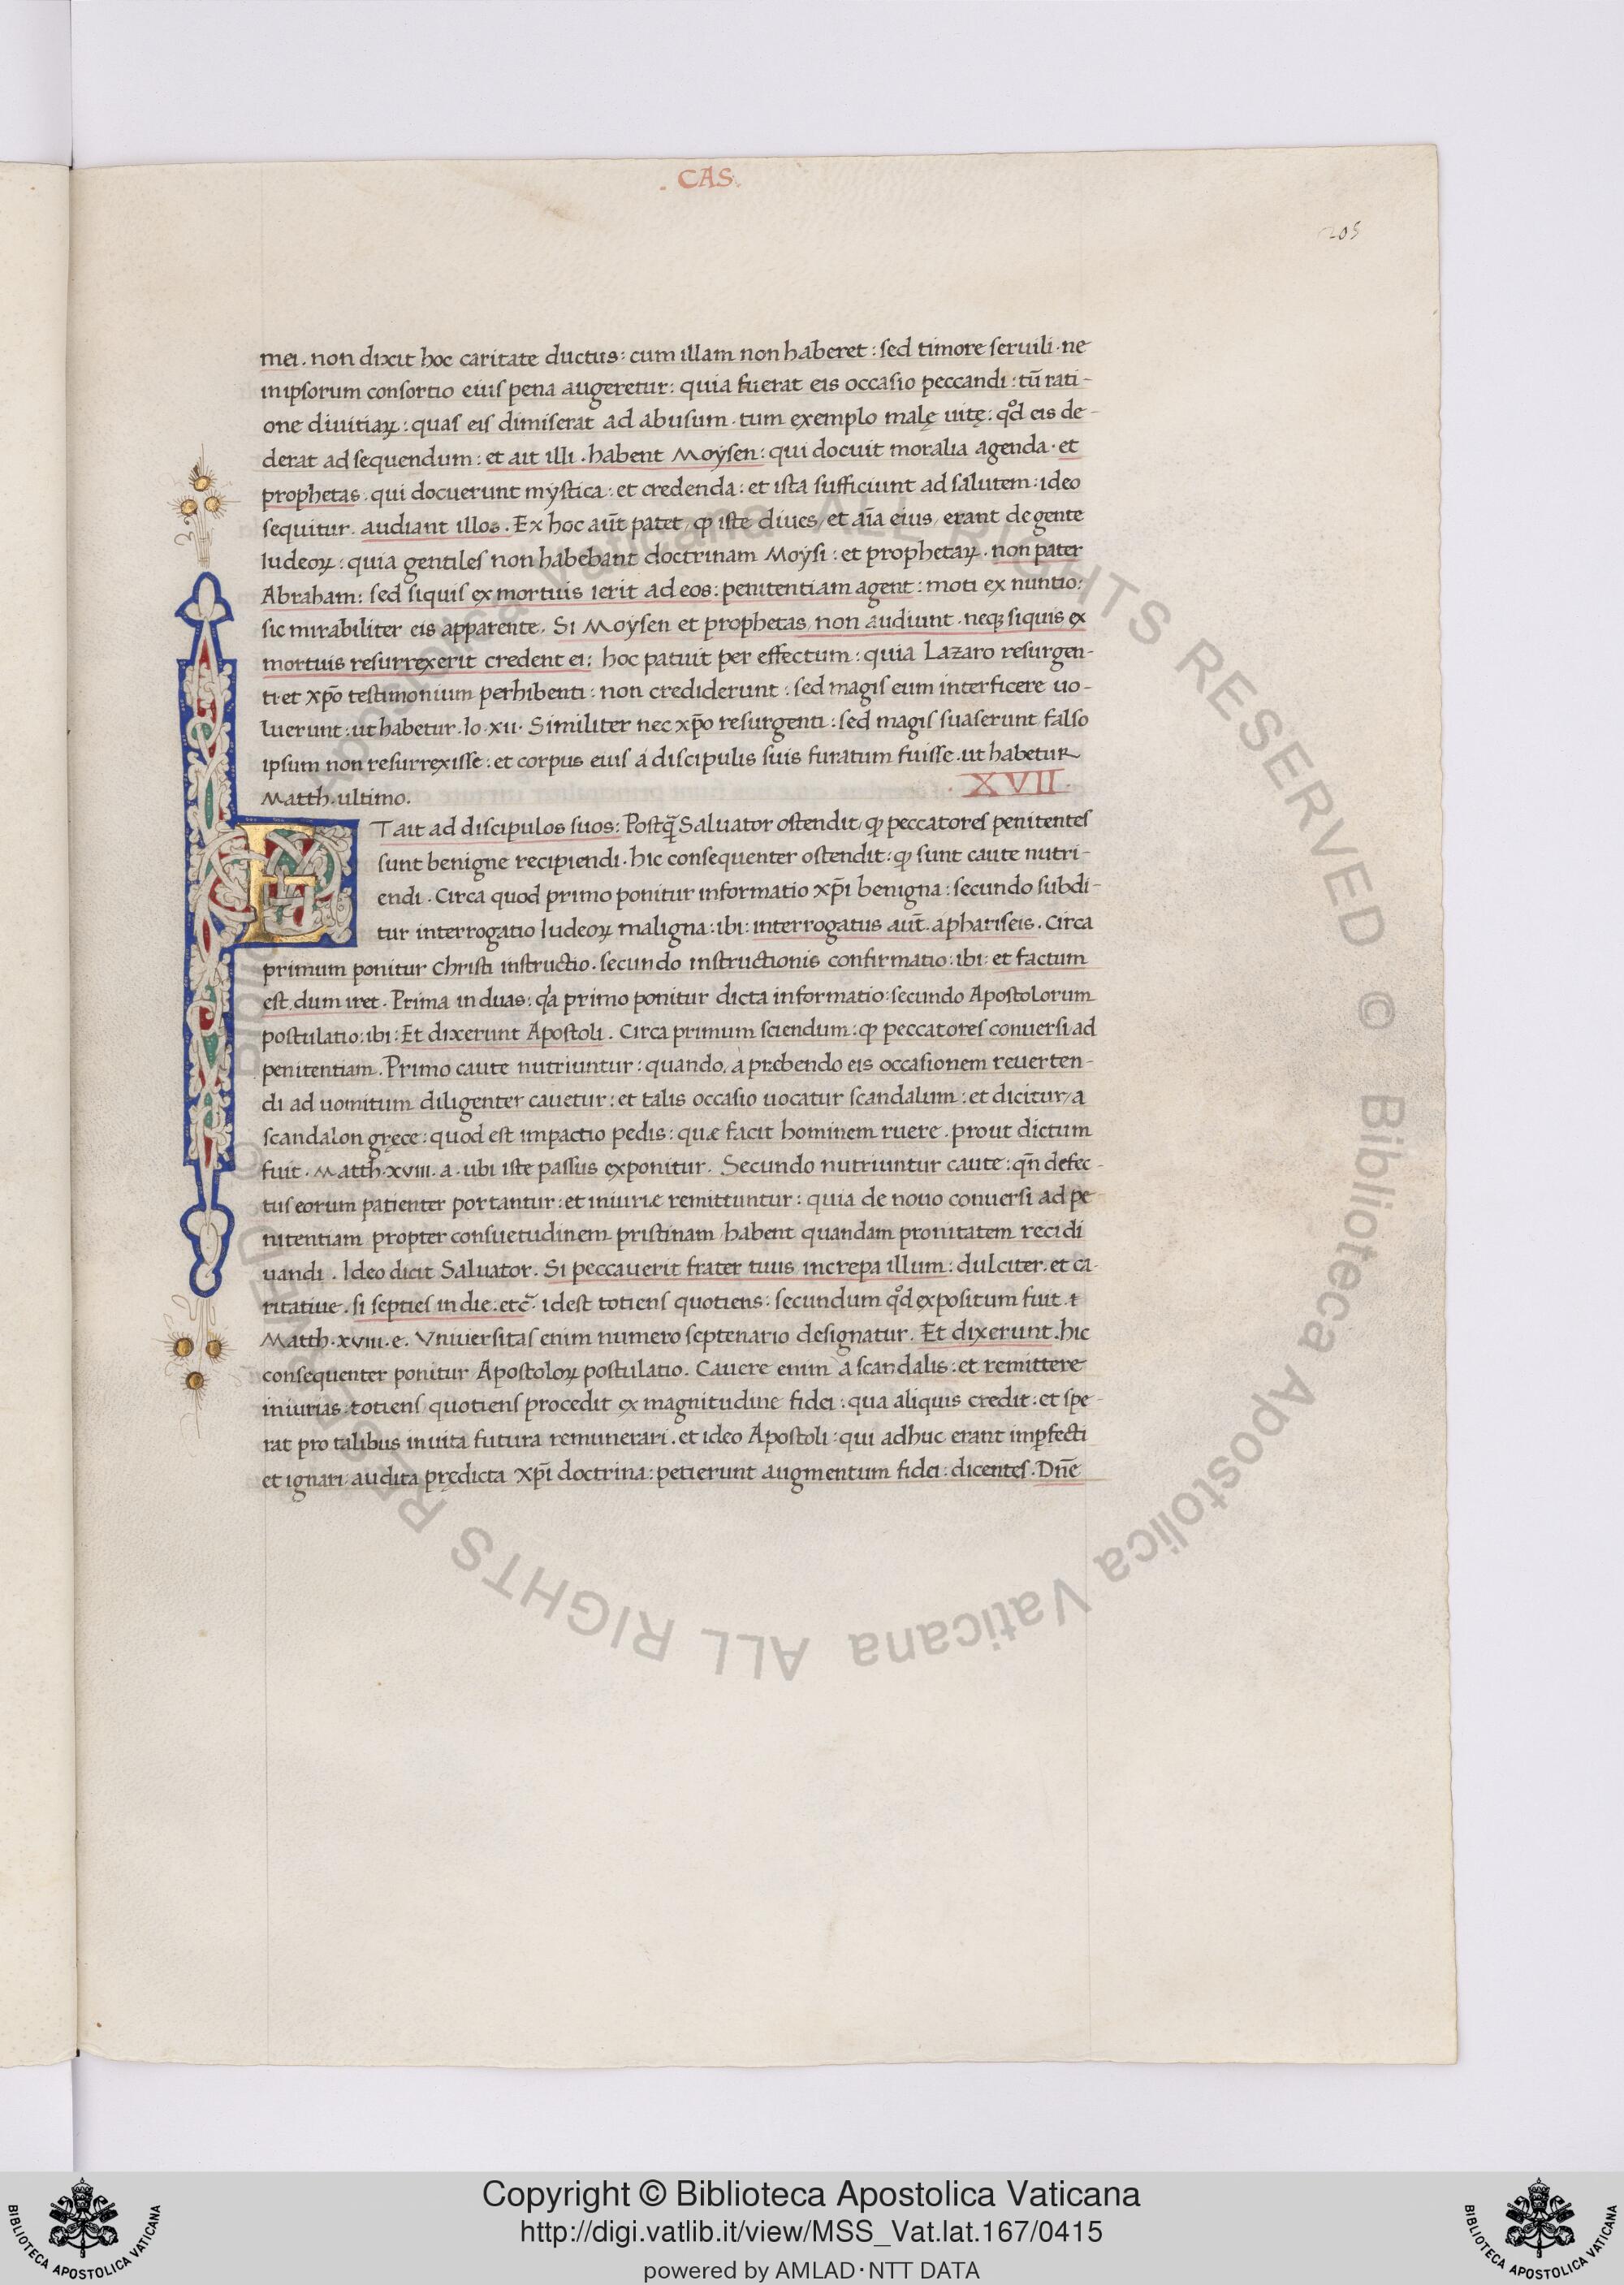 . CAS.
205
mei. non dixit hoc caritate ductus: cum illam non haberet: sed timore seruili. ne
inipsorum consortio eius pena augeretur: quia fuerat eis occasio peccandi: tū rati-
one diuitiaꝝ: quas eis dimiserat ad abusum. tum exemplo malę uitę: qd̊ eis de-
derat ad sequendum: et ait illi. habent Moẏsen: qui docuit moralia agenda. et
prophetas. qui docuerunt mẏstica: et credenda: et ista sufficiunt ad salutem: ideo
sequitur. audiant illos. Ex hoc aūt patet, ꝙ iste diues, et aīa eius, erant de gente
Iudeoꝝ: quia gentiles non habebant doctrinam Moẏsi: et prophetaꝝ. non pater
Abraham: sed siquis ex mortuis ierit ad eos: penitentiam agent: moti ex nuntio:
sic mirabiliter eis apparente. Si Moẏsen et prophetas, non audiunt. neqꝫ siquis ex
mortuis resurrexerit credent ei: hoc patuit per effectum: quia Lazaro resurgen-
ti: et xp̄o testimonium perhibenti: non crediderunt: sed magis eum interficere uo-
luerunt: ut habetur. Io. xii. Similiter nec xp̄o resurgenti: sed magis suaserunt falso
ipsum non resurrexisse: et corpus eius a discipulis suis furatum fuisse. ut habetur
Matth. ultimo.
. XVII.
ET ait ad discipulos suos: Postq̄ Saluator ostendit, ꝙ peccatores penitentes
sunt benigne recipiendi. hic consequenter ostendit: ꝙ sunt caute nutri-
endi. Circa quod primo ponitur informatio xp̄i benigna: secundo subdi-
tur interrogatio Iudeoꝝ maligna: ibi: interrogatus aūt. a phariseis. Circa
primum ponitur Christi instructio. secundo instructionis confirmatio: ibi: et factum
est dum iret. Prima in duas: qa primo ponitur dicta informatio: secundo Apostolorum
postulatio: ibi: Et dixerunt Apostoli. Circa primum sciendum: ꝙ peccatores conuersi ad
penitentiam. Primo caute nutriuntur: quando, a prebendo eis occasionem reuerten-
di ad uomitum diligenter cauetur: et talis occasio uocatur scandalum: et dicitur, a
scandalon gręce: quod est impactio pedis: quæ facit hominem ruere. prout dictum
fuit. Matth. xviii. a. ubi iste passus exponitur. Secundo nutriuntur caute: qn̄ defec-
tus eorum patienter portantur: et iniuriæ remittuntur: quia de nouo conuersi ad pe
nitentiam propter consuetudinem pristinam habent quandam pronitatem recidi
uandi. Ideo dicit Saluator. Si peccauerit frater tuus increpa illum: dulciter. et ca-
ritatiue. si septies in die. etc̄. idest totiens quotiens: secundum qd̊ expositum fuit.
Matth. xviii. e. Vniuersitas enim numero septenario designatur. Et dixerunt. hic
consequenter ponitur Apostoloꝝ postulatio. Cauere enim a scandalis: et remittere
iniurias: totiens quotiens procedit ex magnitudine fidei: qua aliquis credit: et spe-
rat pro talibus in uita futura remunerari. et ideo Apostoli: qui adhuc erant imperfecti
et ignari: audita prędicta xp̄i doctrina: petierunt augmentum fidei: dicentes. Dn̄e
© Biblioteca Apostolica Vaticana ALL RIGHTS RESERVED © Biblioteca Apostolica Vaticana ALL RIGHTS RESERVED
BIBLIOTECA APOSTOLICA VATICANA
Copyright © Biblioteca Apostolica Vaticana
http://digi.vatlib.it/view/MSS_Vat.lat.167/0415
powered by AMLAD·NTT DATA
BIBLIOTECA APOSTOLICA VATICANA